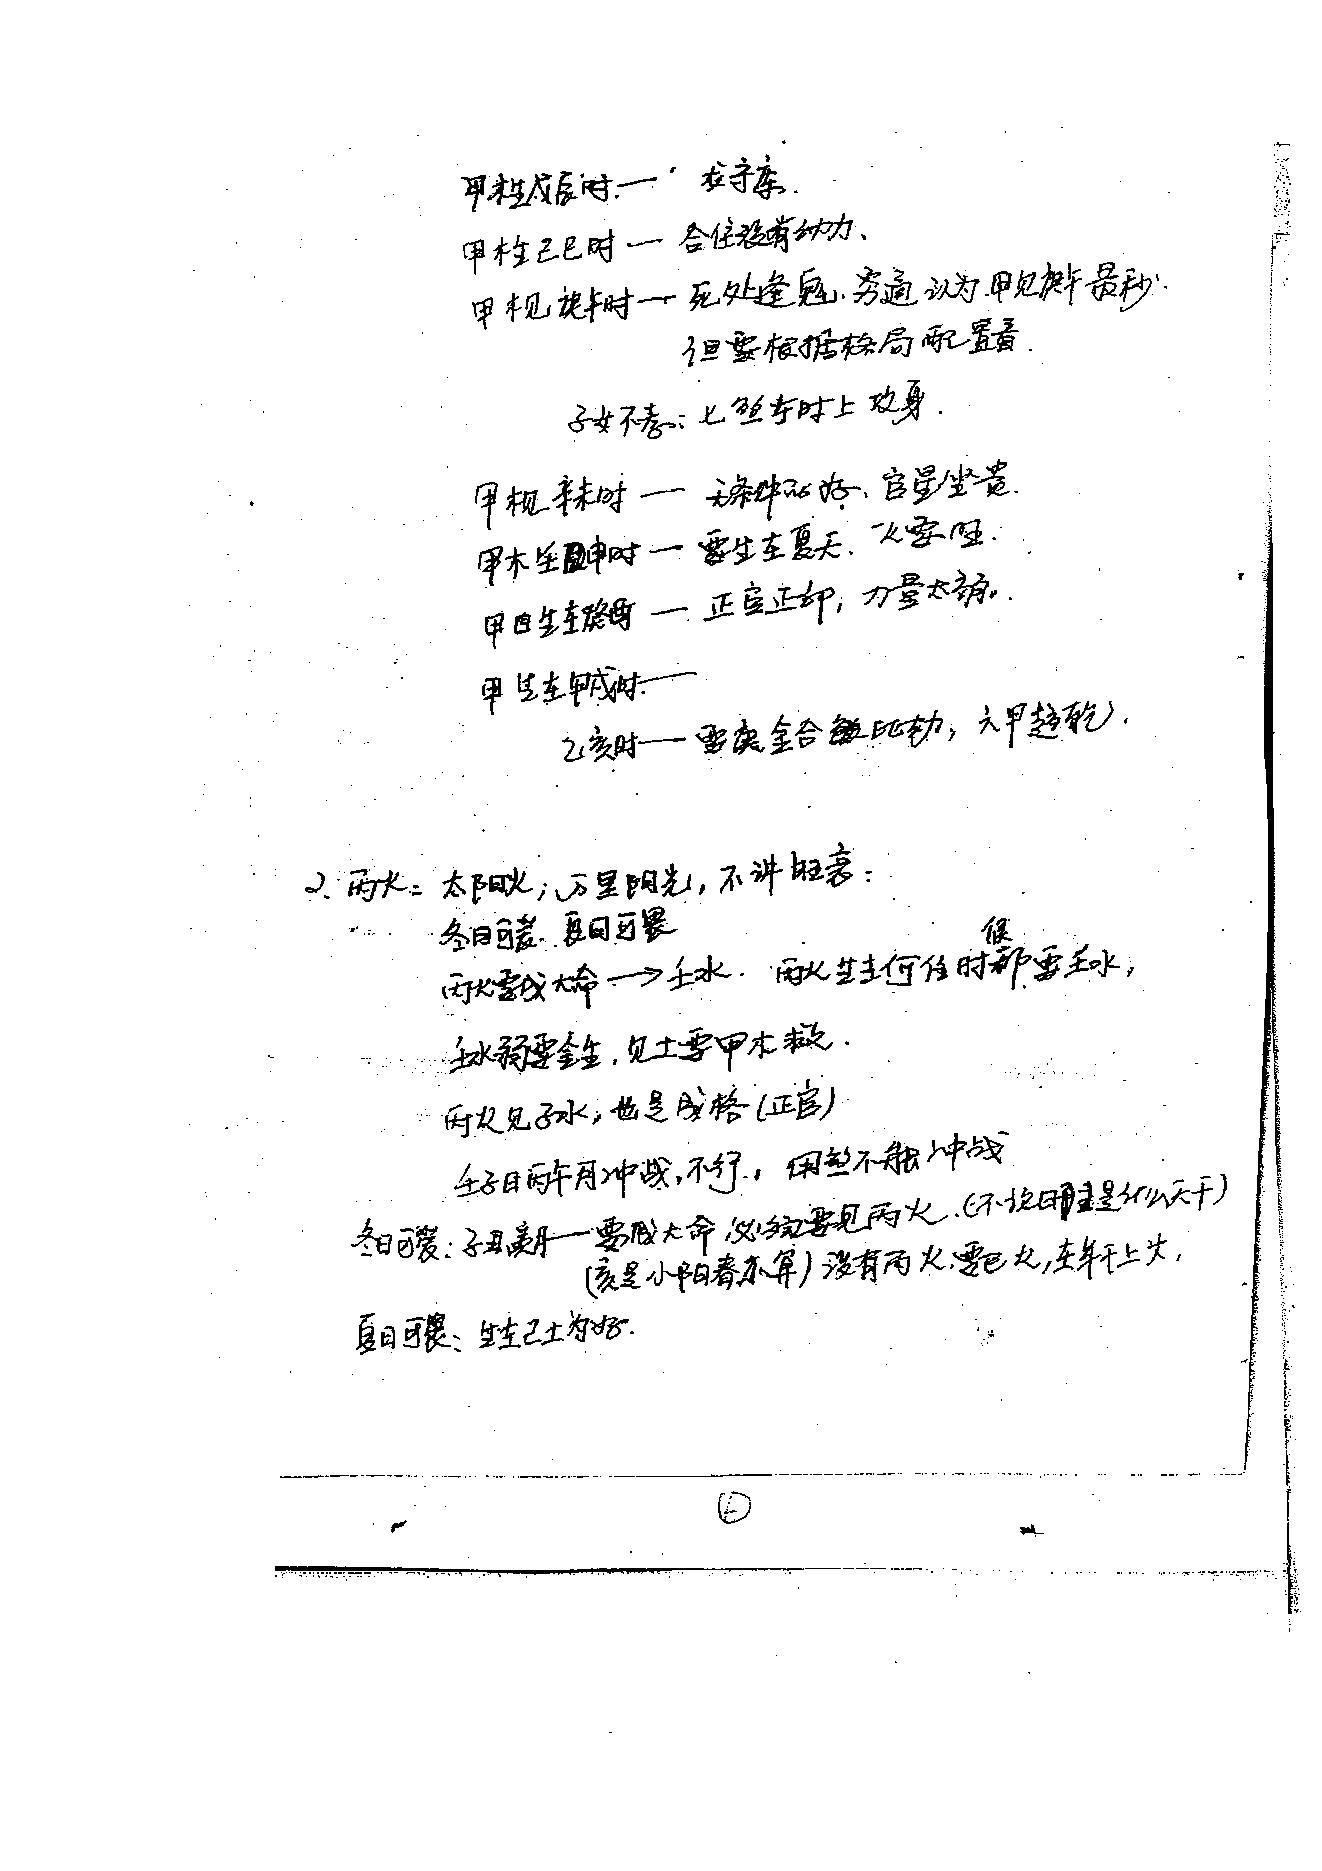 甲木生戊辰时—龙守库.
甲木生己巳时—合住没有动力、
甲木见庚午时—死处逢鬼、穷通认为甲见庚午最秒.
但要根据格局配置看.
子女不孝:七煞在时上攻身.
甲木见辛未时—无条件的好、官星坐贵.
甲木生壬申时—要生在夏天、火要旺.
甲日生在癸酉时—正官正印,力量太
甲生在甲戌时—
乙亥时—要庚金合 比劫,六甲趋乾).
2、丙火=太阳火;万里阳光,不讲旺衰:
冬日可爱.夏日可畏
丙火要成大命→壬水.丙火生在何任时候都要壬水,
壬水弱要金生,见土要甲木救.
丙火见子水,也是成格(正官)
壬子日丙午月冲战,不行.,用煞不能冲战
冬日可爱:子丑亥月—要成大命必须要见丙火.(不论日主是什么天干)
(亥是小阳春亦算)没有丙火.要巳火,在年干上火,
夏日可畏:生在己土为好.